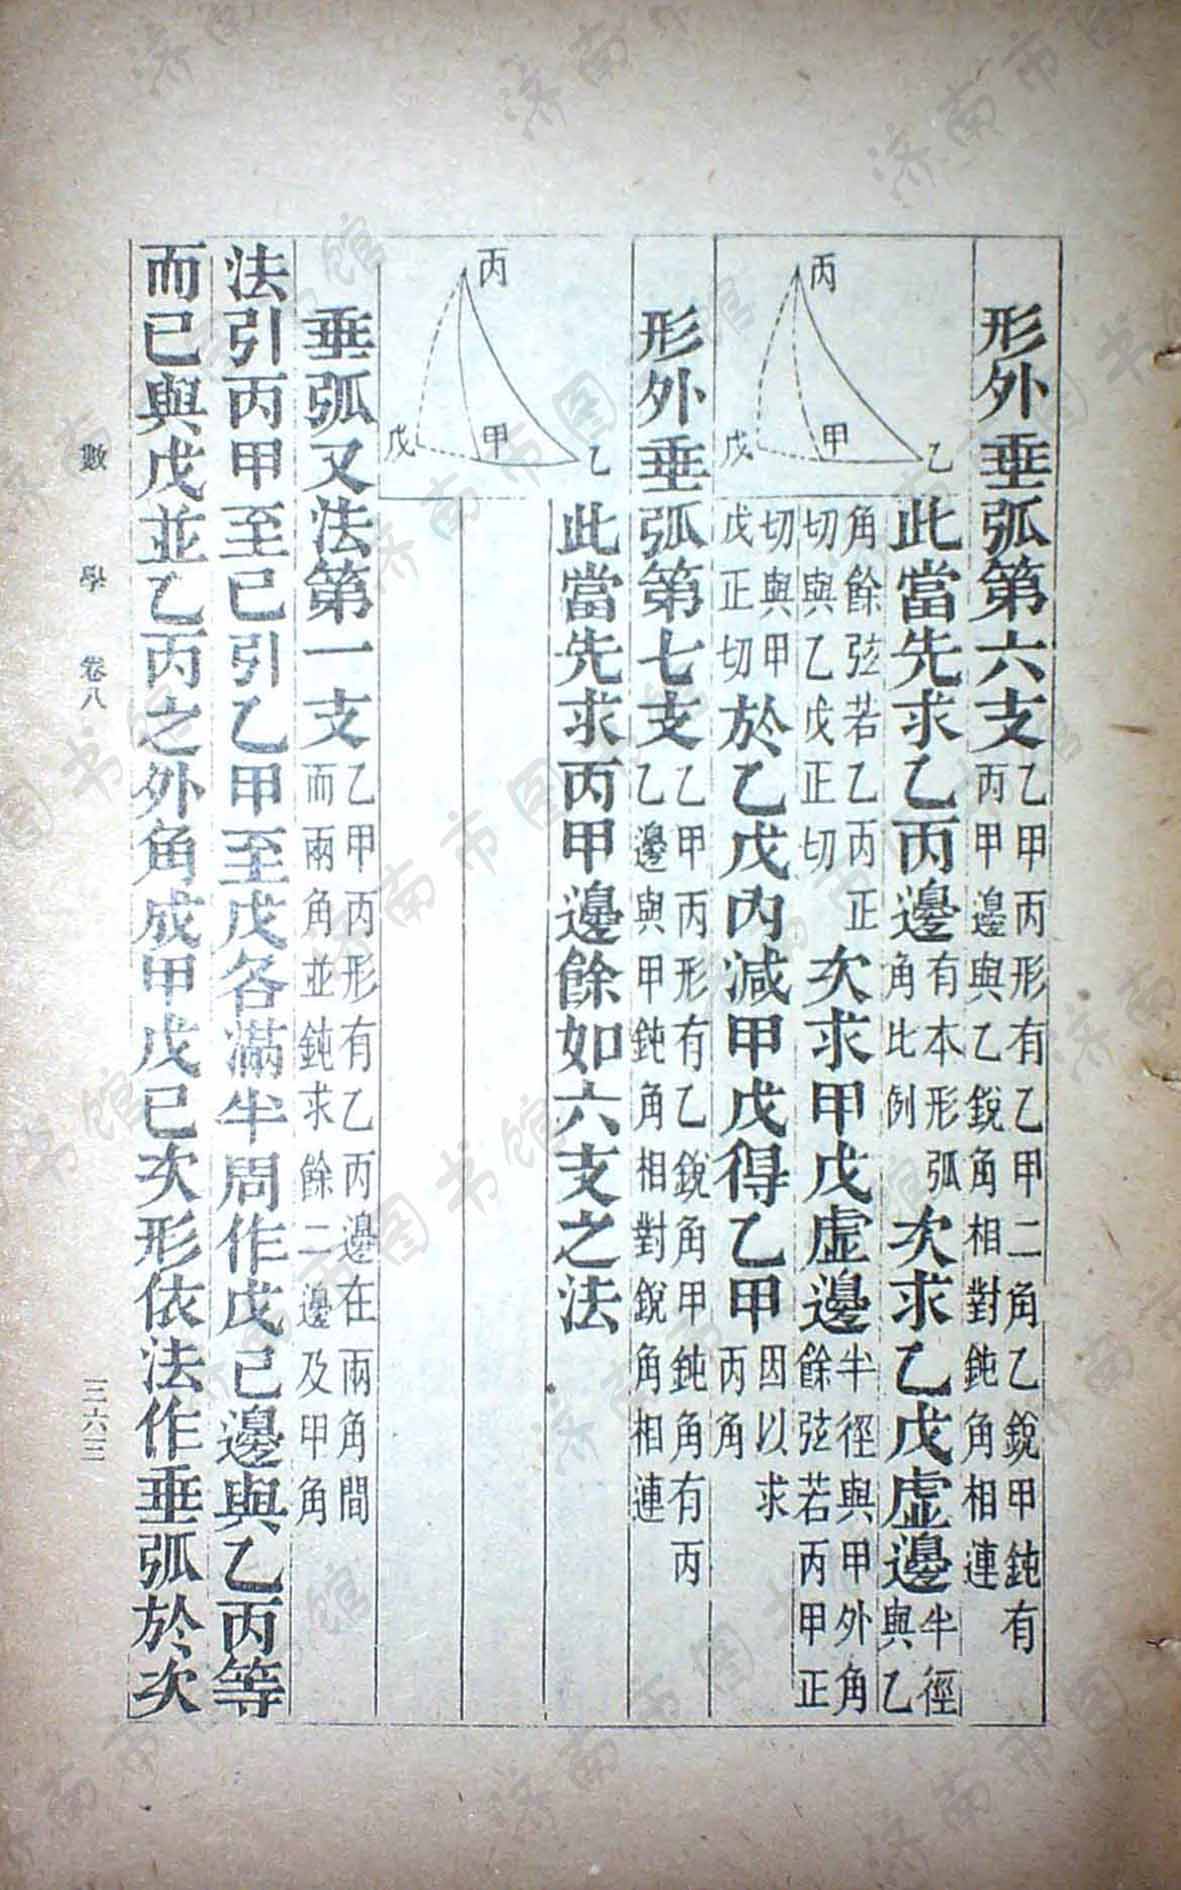 形外垂弧第六支乙甲丙形有乙甲二角乙銳甲鈍有丙甲邊與乙銳角相對鈍角相連
丙
甲
乙
戊
此當先求乙丙邊有本形弧角比例次求乙戊虛邊半徑與乙
角餘弦若乙丙正切與乙戊正切次求甲戊虛邊半徑與甲外角餘弦若丙甲正
切與甲戊正切於乙戊內減甲戊得乙甲因以求丙角
形外垂弧第七支乙甲丙形有乙銳角甲鈍角有丙乙邊與甲鈍角相對銳角相連
丙
甲
乙
戊
此當先求丙甲邊餘如六支之法
垂弧又法第一支乙甲丙形有乙丙邊在兩角間而兩角並鈍求餘二邊及甲角
法引丙甲至己引乙甲至戊各滿半周作戊己邊與乙丙等
而己與戊並乙丙之外角成甲戊己次形依法作垂弧於次
數學 卷八
一三六三
济南市图书馆